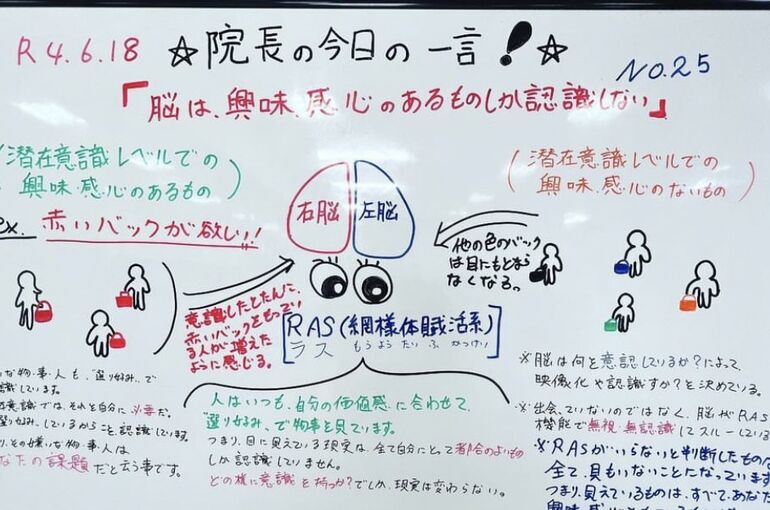 R4.6.18 ☆院長の今日の一言!☆ NO.25
「脳は、興味、感心のあるものしか認識しない」
潜在意識レベルでの
興味、感心のあるもの)
ex. 赤いバックが欲しい!!
右脳 左脳
(潜在意識レベルでの
興味、感心のないもの)
他の色のバックは
目にもとまら
なくなる。
意識したとたんに、
赤いバックをもってい
る人が増えた
ように感じる。
RAS(網様体賦活系)
ラス もうようたいふかっけい
人はいつも、自分の価値感に合わせて、
"選り好み"で物事を見ています。
つまり、目に見えている現実は、全て自分にとって都合のよいもの
しか認識していません。
どの様に意識を持つか?でしか、現実は変わらない。
な物・事・人も、"選り好み"で
識しています。
意識では、それを自分に必要だ。
好みしているからこと、認識しています。
り、その嫌いな物・事・人は
なたの課題だと云う事です。
※脳は何を意認しているか?によって、
映像化や認識すか?を決めている。
※出会っていないのではなく、脳がRAS
機能で無視・無認識してスルーしている
※RASがいらないと判断したもの
全て、見もいないことになっています
つまり、見えているものは、すべて、あなた